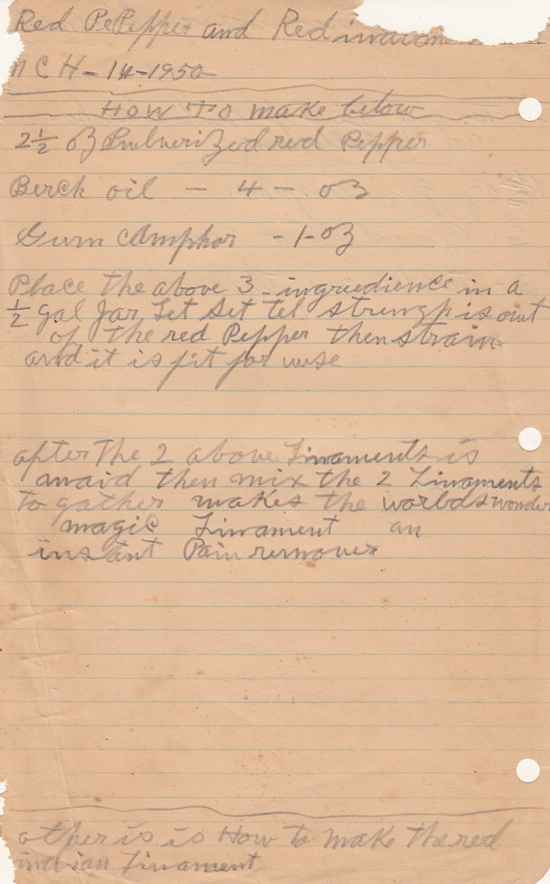 Red PePepper and Red
MCH-14-1950
HOW TO make below
2½ oz Pulverized red Pepper
Berck oil - 4 - oz
Gum camphor - 1 - oz
Place the above 3 - ingruedience in a
½ gal Jar Let Set tel strength is out
of the red Pepper then strain
and it is fit for uese
after The 2 above Linaments is
maid then mix the 2 Linaments
to gather makes the worlds wonder
magic Linament an
instant Pain remover
other is is How to make the red
indian Linament